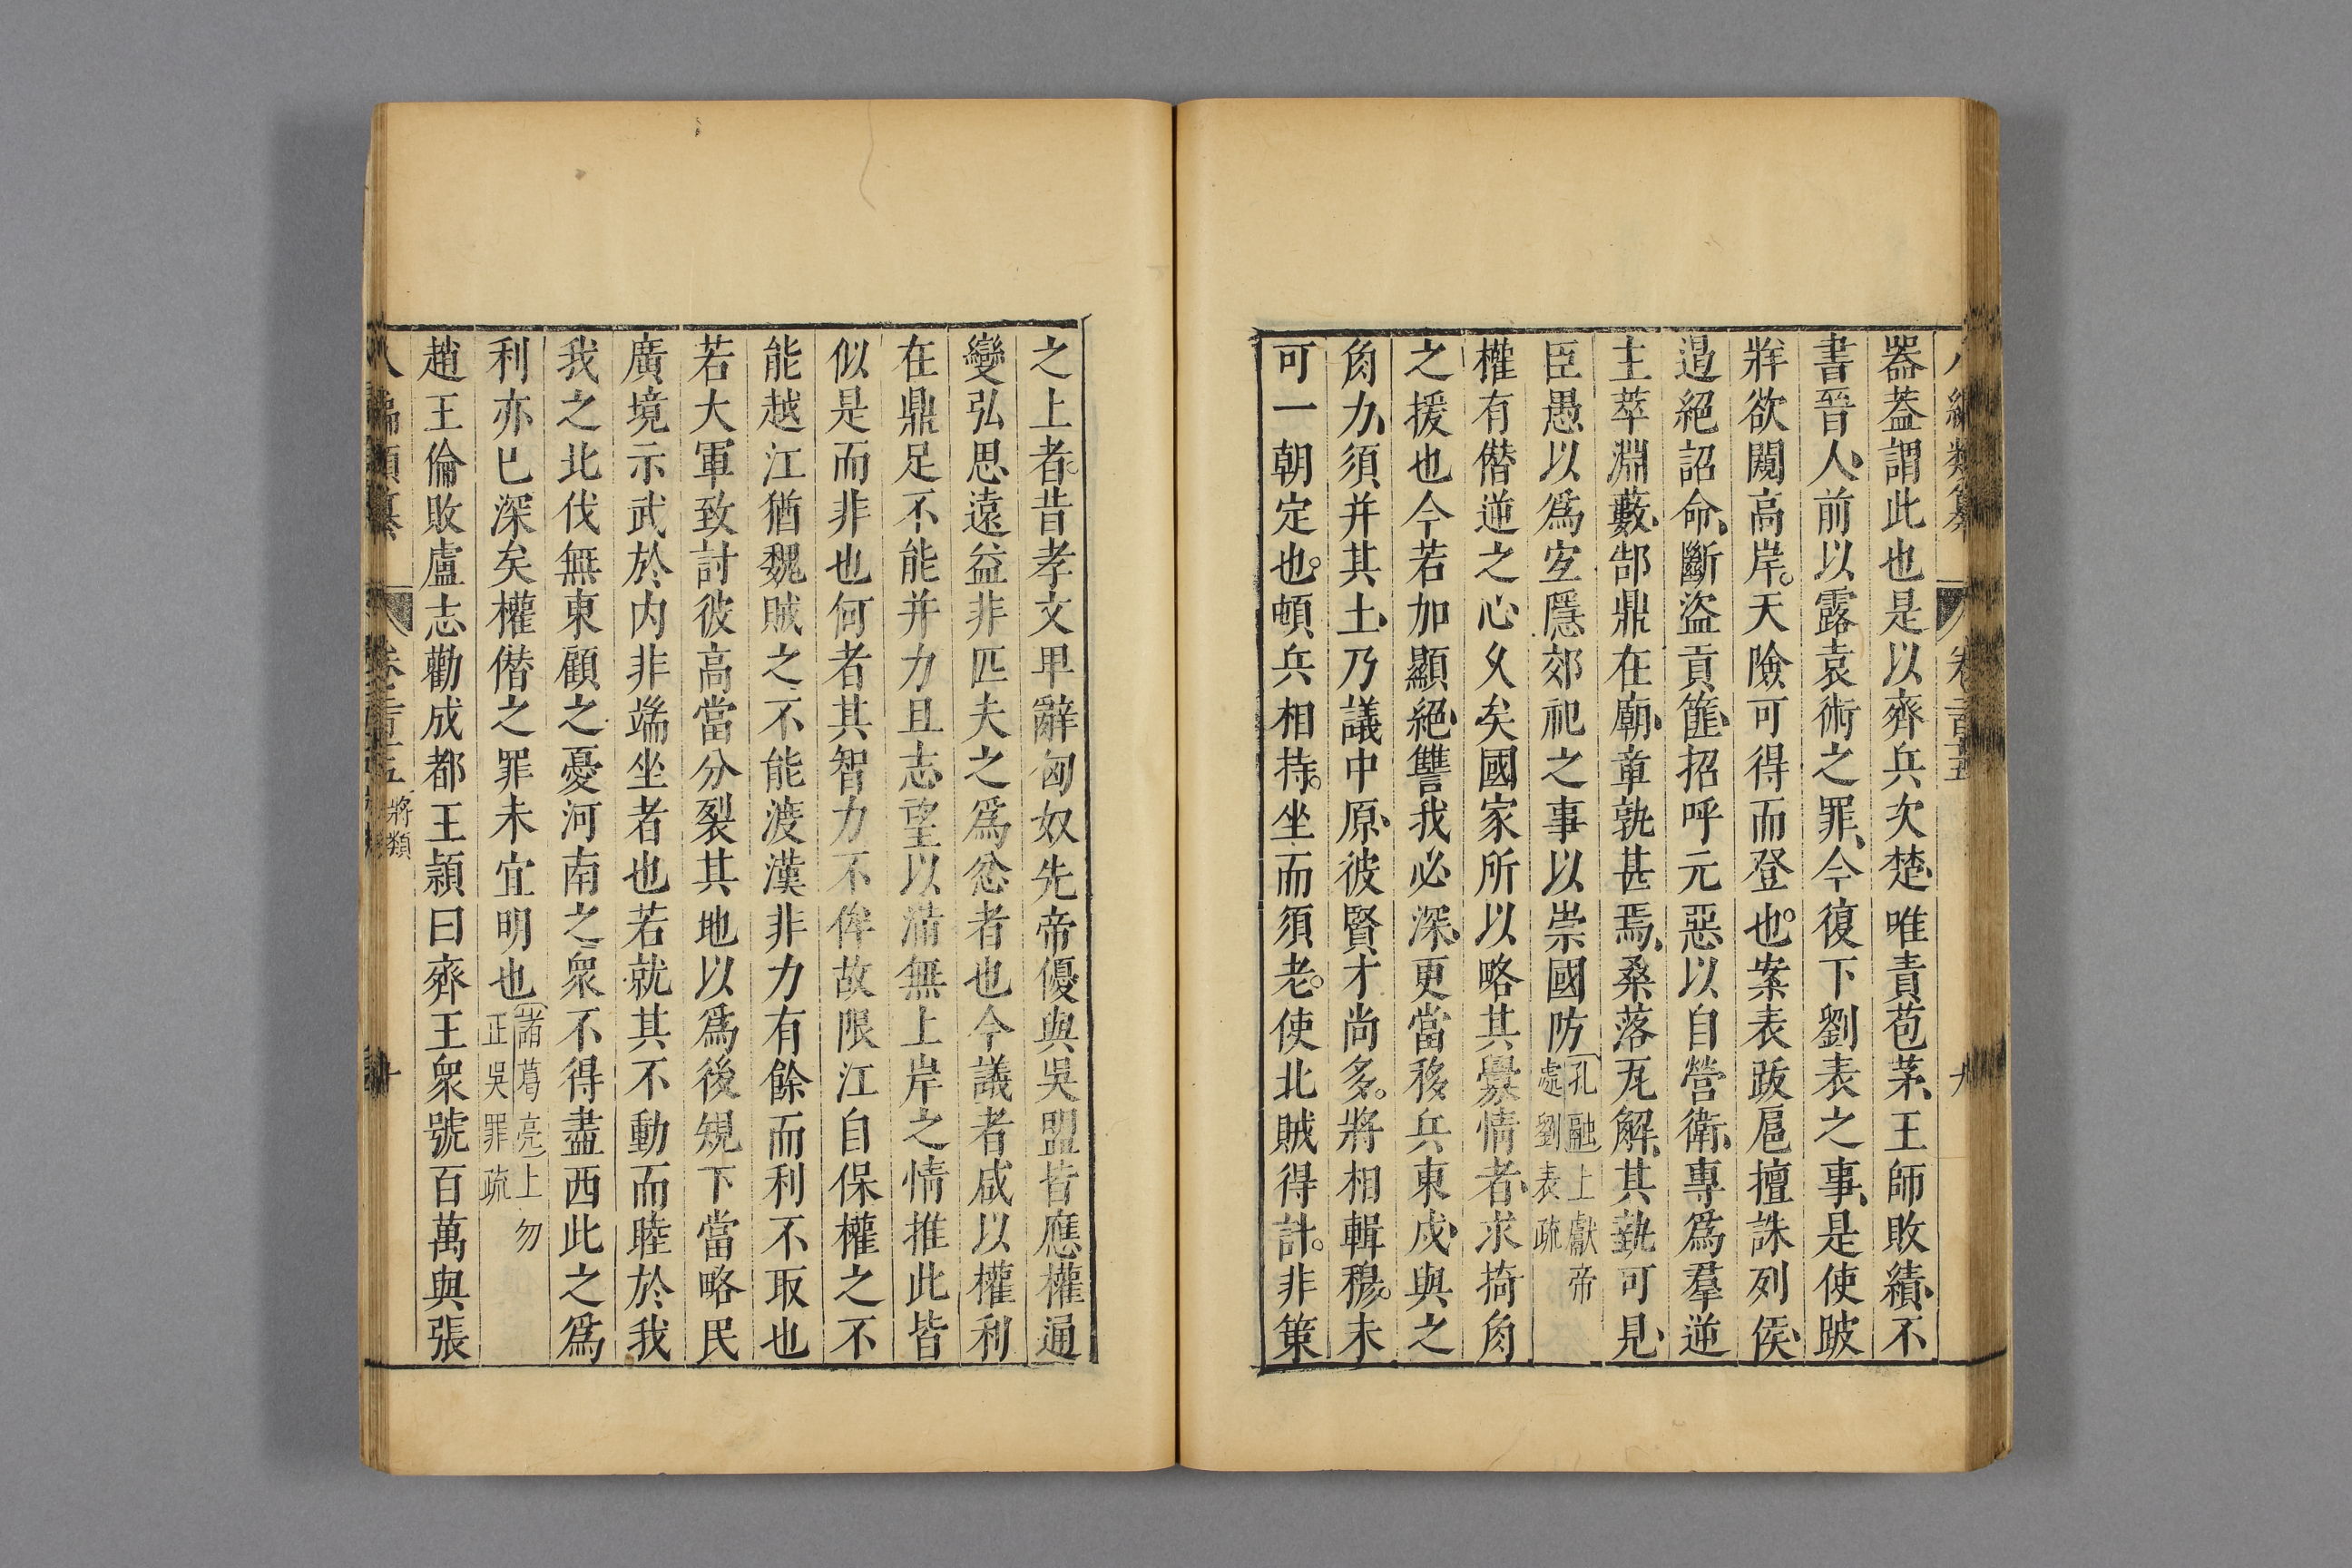 八編類纂 卷二百十五 九
器蓋謂此也是以齊兵次楚唯責苞茅王師敗績不
書晉人前以露袁術之罪今復下劉表之事是使跛
牂欲闚高岸天險可得而登也案表跋扈擅誅列侯
遏絕詔命斷盜貢篚招呼元惡以自營衛專爲羣逆
主萃淵藪郜鼎在廟章孰甚焉桑落瓦解其埶可見
臣愚以爲宜隱郊祀之事以崇國防孔融上獻帝處劉表疏
權有僭逆之心久矣國家所以略其釁情者求掎角
之援也今若加顯絕讐我必深更當移兵東戍與之
角力須并其土乃議中原彼賢才尚多將相輯穆未
可一朝定也頓兵相持坐而須老使北賊得計非策
之上者昔孝文卑辭匈奴先帝優與吳盟皆應權通
變弘思遠益非匹夫之爲忿者也今議者咸以權利
在鼎足不能并力且志望以滿無上岸之情推此皆
似是而非也何者其智力不侔故限江自保權之不
能越江猶魏賊之不能渡漢非力有餘而利不取也
若大軍致討彼高當分裂其地以爲後規下當略民
廣境示武於内非端坐者也若就其不動而睦於我
我之北伐無東顧之憂河南之衆不得盡西此之爲
利亦已深矣權僭之罪未宜明也諸葛亮上勿正吳罪疏
趙王倫敗盧志勸成都王頴曰齊王衆號百萬與張
八編類纂 卷二百十五 將類 十